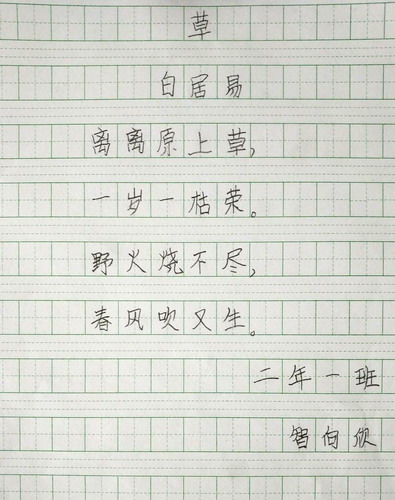 草
白居易
离离原上草,
一岁一枯荣。
野火烧不尽,
春风吹又生。
二年一班
智向欣